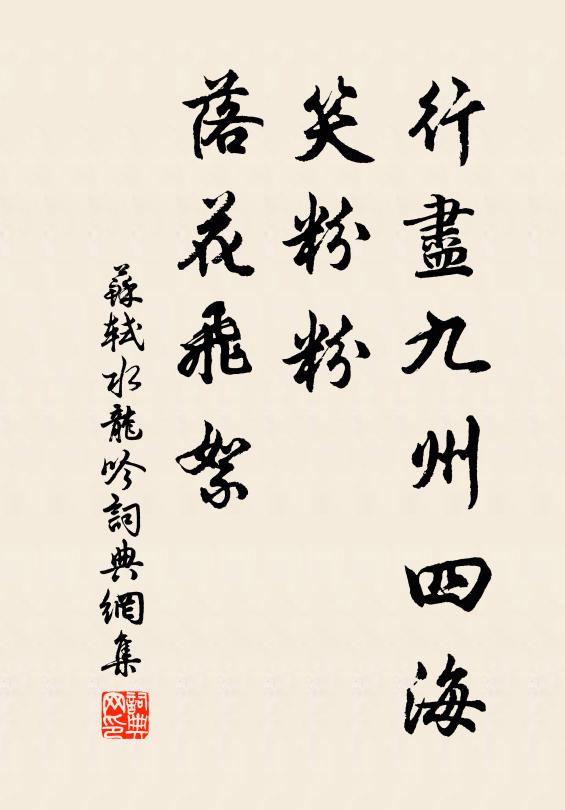 行盡九州四海
笑粉粉
落花飛絮
蘇軾水龍吟詞典網集
詞典網印